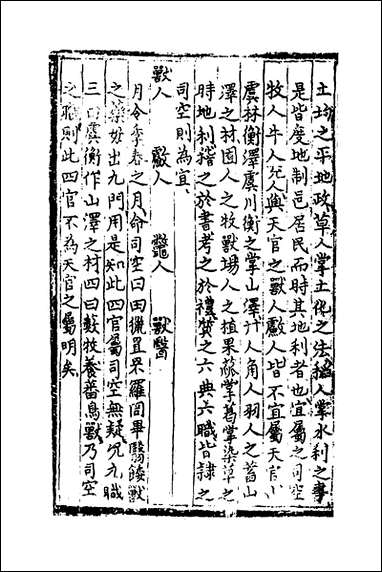 土均之平地政草人掌土化之法稻人掌水利之事
是皆度地制邑居民而時其地利者也宜屬之司空
牧人牛人充人與天官之獸人䱷人皆不宜屬天官山
虞林衡澤虞川衡之掌山澤卝人角人羽人之蓄山
澤之材囿人之牧獸場人之植果蓏掌荼掌染草之
時地利稽之於書考之於禮質之六典六職皆隸之
司空則為宜
獸人 䱷人 鼈人 獸醫
月令季春之月命司空曰田獵罝罘羅罔畢翳餧獸
之藥毋出九門用是知此四官屬司空無疑况九職
三曰虞衡作山澤之材四曰藪牧養蕃鳥獸乃司空
之職則此四官不為天官之屬明矣